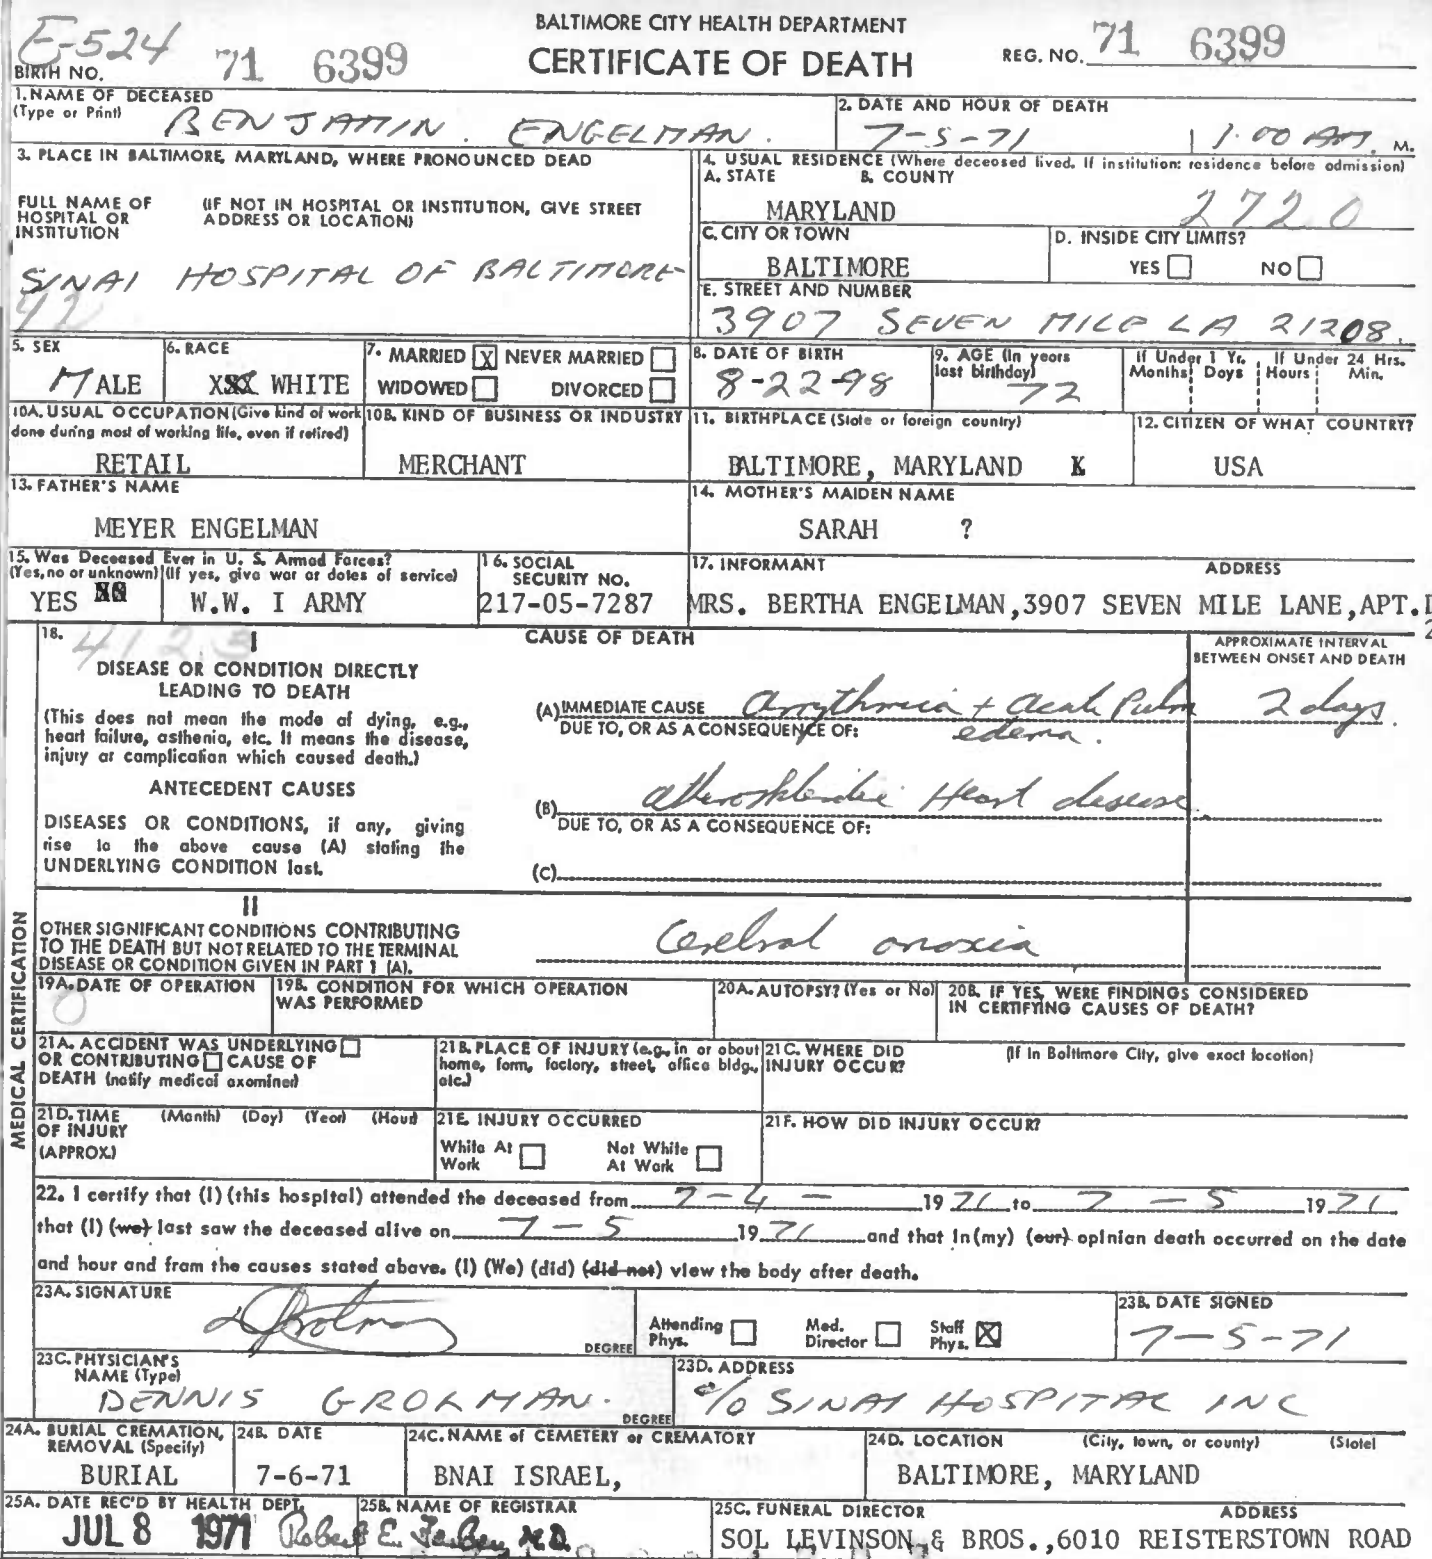 E-524
BALTIMORE CITY HEALTH DEPARTMENT
CERTIFICATE OF DEATH
BIRTH NO. 71 6399
REG. NO. 71 6399
1. NAME OF DECEASED
(Type or Print) BENJAMIN. ENGELMAN.
2. DATE AND HOUR OF DEATH
7-5-71 1:00 AM. M.
3. PLACE IN BALTIMORE, MARYLAND, WHERE PRONOUNCED DEAD
FULL NAME OF HOSPITAL OR INSTITUTION
(IF NOT IN HOSPITAL OR INSTITUTION, GIVE STREET ADDRESS OR LOCATION)
SINAI HOSPITAL OF BALTIMORE
42
4. USUAL RESIDENCE (Where deceased lived. If institution: residence before admission)
A. STATE B. COUNTY
MARYLAND 2720
C. CITY OR TOWN
BALTIMORE
D. INSIDE CITY LIMITS?
YES NO
E. STREET AND NUMBER
3907 SEVEN MILE LA 21208.
5. SEX
MALE
6. RACE
XXX WHITE
7. MARRIED X NEVER MARRIED
WIDOWED DIVORCED
8. DATE OF BIRTH
8-22-98
9. AGE (In years last birthday)
72
If Under 1 Yr. Months Days
If Under 24 Hrs. Hours Min.
10A. USUAL OCCUPATION (Give kind of work done during most of working life, even if retired)
RETAIL
10B. KIND OF BUSINESS OR INDUSTRY
MERCHANT
11. BIRTHPLACE (State or foreign country)
BALTIMORE, MARYLAND
12. CITIZEN OF WHAT COUNTRY?
USA
13. FATHER'S NAME
MEYER ENGELMAN
14. MOTHER'S MAIDEN NAME
SARAH ?
15. Was Deceased Ever in U. S. Armed Forces?
(Yes, no or unknown) (If yes, give war or dates of service)
YES W.W. I ARMY
16. SOCIAL SECURITY NO.
217-05-7287
17. INFORMANT ADDRESS
MRS. BERTHA ENGELMAN,3907 SEVEN MILE LANE,APT.
MEDICAL CERTIFICATION
18. 4123
I
CAUSE OF DEATH
APPROXIMATE INTERVAL
BETWEEN ONSET AND DEATH
DISEASE OR CONDITION DIRECTLY
LEADING TO DEATH
(This does not mean the mode of dying, e.g.,
heart failure, asthenia, etc. It means the disease,
injury or complication which caused death.)
(A) IMMEDIATE CAUSE Arrythmia + Acute Pulm edema. 2 days.
DUE TO, OR AS A CONSEQUENCE OF:
ANTECEDENT CAUSES
DISEASES OR CONDITIONS, if any, giving
rise to the above cause (A) stating the
UNDERLYING CONDITION last.
(B) Heart disease
DUE TO, OR AS A CONSEQUENCE OF:
(C)
II
OTHER SIGNIFICANT CONDITIONS CONTRIBUTING
TO THE DEATH BUT NOT RELATED TO THE TERMINAL
DISEASE OR CONDITION GIVEN IN PART 1 (A).
Cerebral anoxia
19A. DATE OF OPERATION
0
19B. CONDITION FOR WHICH OPERATION
WAS PERFORMED
20A. AUTOPSY? (Yes or No)
20B. IF YES, WERE FINDINGS CONSIDERED
IN CERTIFYING CAUSES OF DEATH?
21A. ACCIDENT WAS UNDERLYING
OR CONTRIBUTING CAUSE OF
DEATH (notify medical examiner)
21B. PLACE OF INJURY (e.g., in or about
home, farm, factory, street, office bldg.,
etc.)
21C. WHERE DID
INJURY OCCUR?
(If in Baltimore City, give exact location)
21D. TIME (Month) (Day) (Year) (Hour)
OF INJURY
(APPROX.)
21E. INJURY OCCURRED
While At Work
Not While At Work
21F. HOW DID INJURY OCCUR?
22. I certify that (I) (this hospital) attended the deceased from 7-4- 1971 to 7-5 1971
that (I) (we) last saw the deceased alive on 7-5 1971 and that in (my) (our) opinian death occurred on the date
and hour and from the causes stated above. (I) (We) (did) (did not) view the body after death.
23A. SIGNATURE
DEGREE
Attending Phys.
Med. Director
Staff Phys. X
23B. DATE SIGNED
7-5-71
23C. PHYSICIAN'S
NAME (Type)
DENNIS GROLMAN.
DEGREE
23D. ADDRESS
c/o SINAI HOSPITAL INC
24A. BURIAL CREMATION,
REMOVAL (Specify)
BURIAL
24B. DATE
7-6-71
24C. NAME of CEMETERY or CREMATORY
BNAI ISRAEL,
24D. LOCATION (City, town, or county) (State)
BALTIMORE, MARYLAND
25A. DATE REC'D BY HEALTH DEPT.
JUL 8 1971
25B. NAME OF REGISTRAR
Robert E. Farber, M.D.
25C. FUNERAL DIRECTOR ADDRESS
SOL LEVINSON & BROS.,6010 REISTERSTOWN ROAD